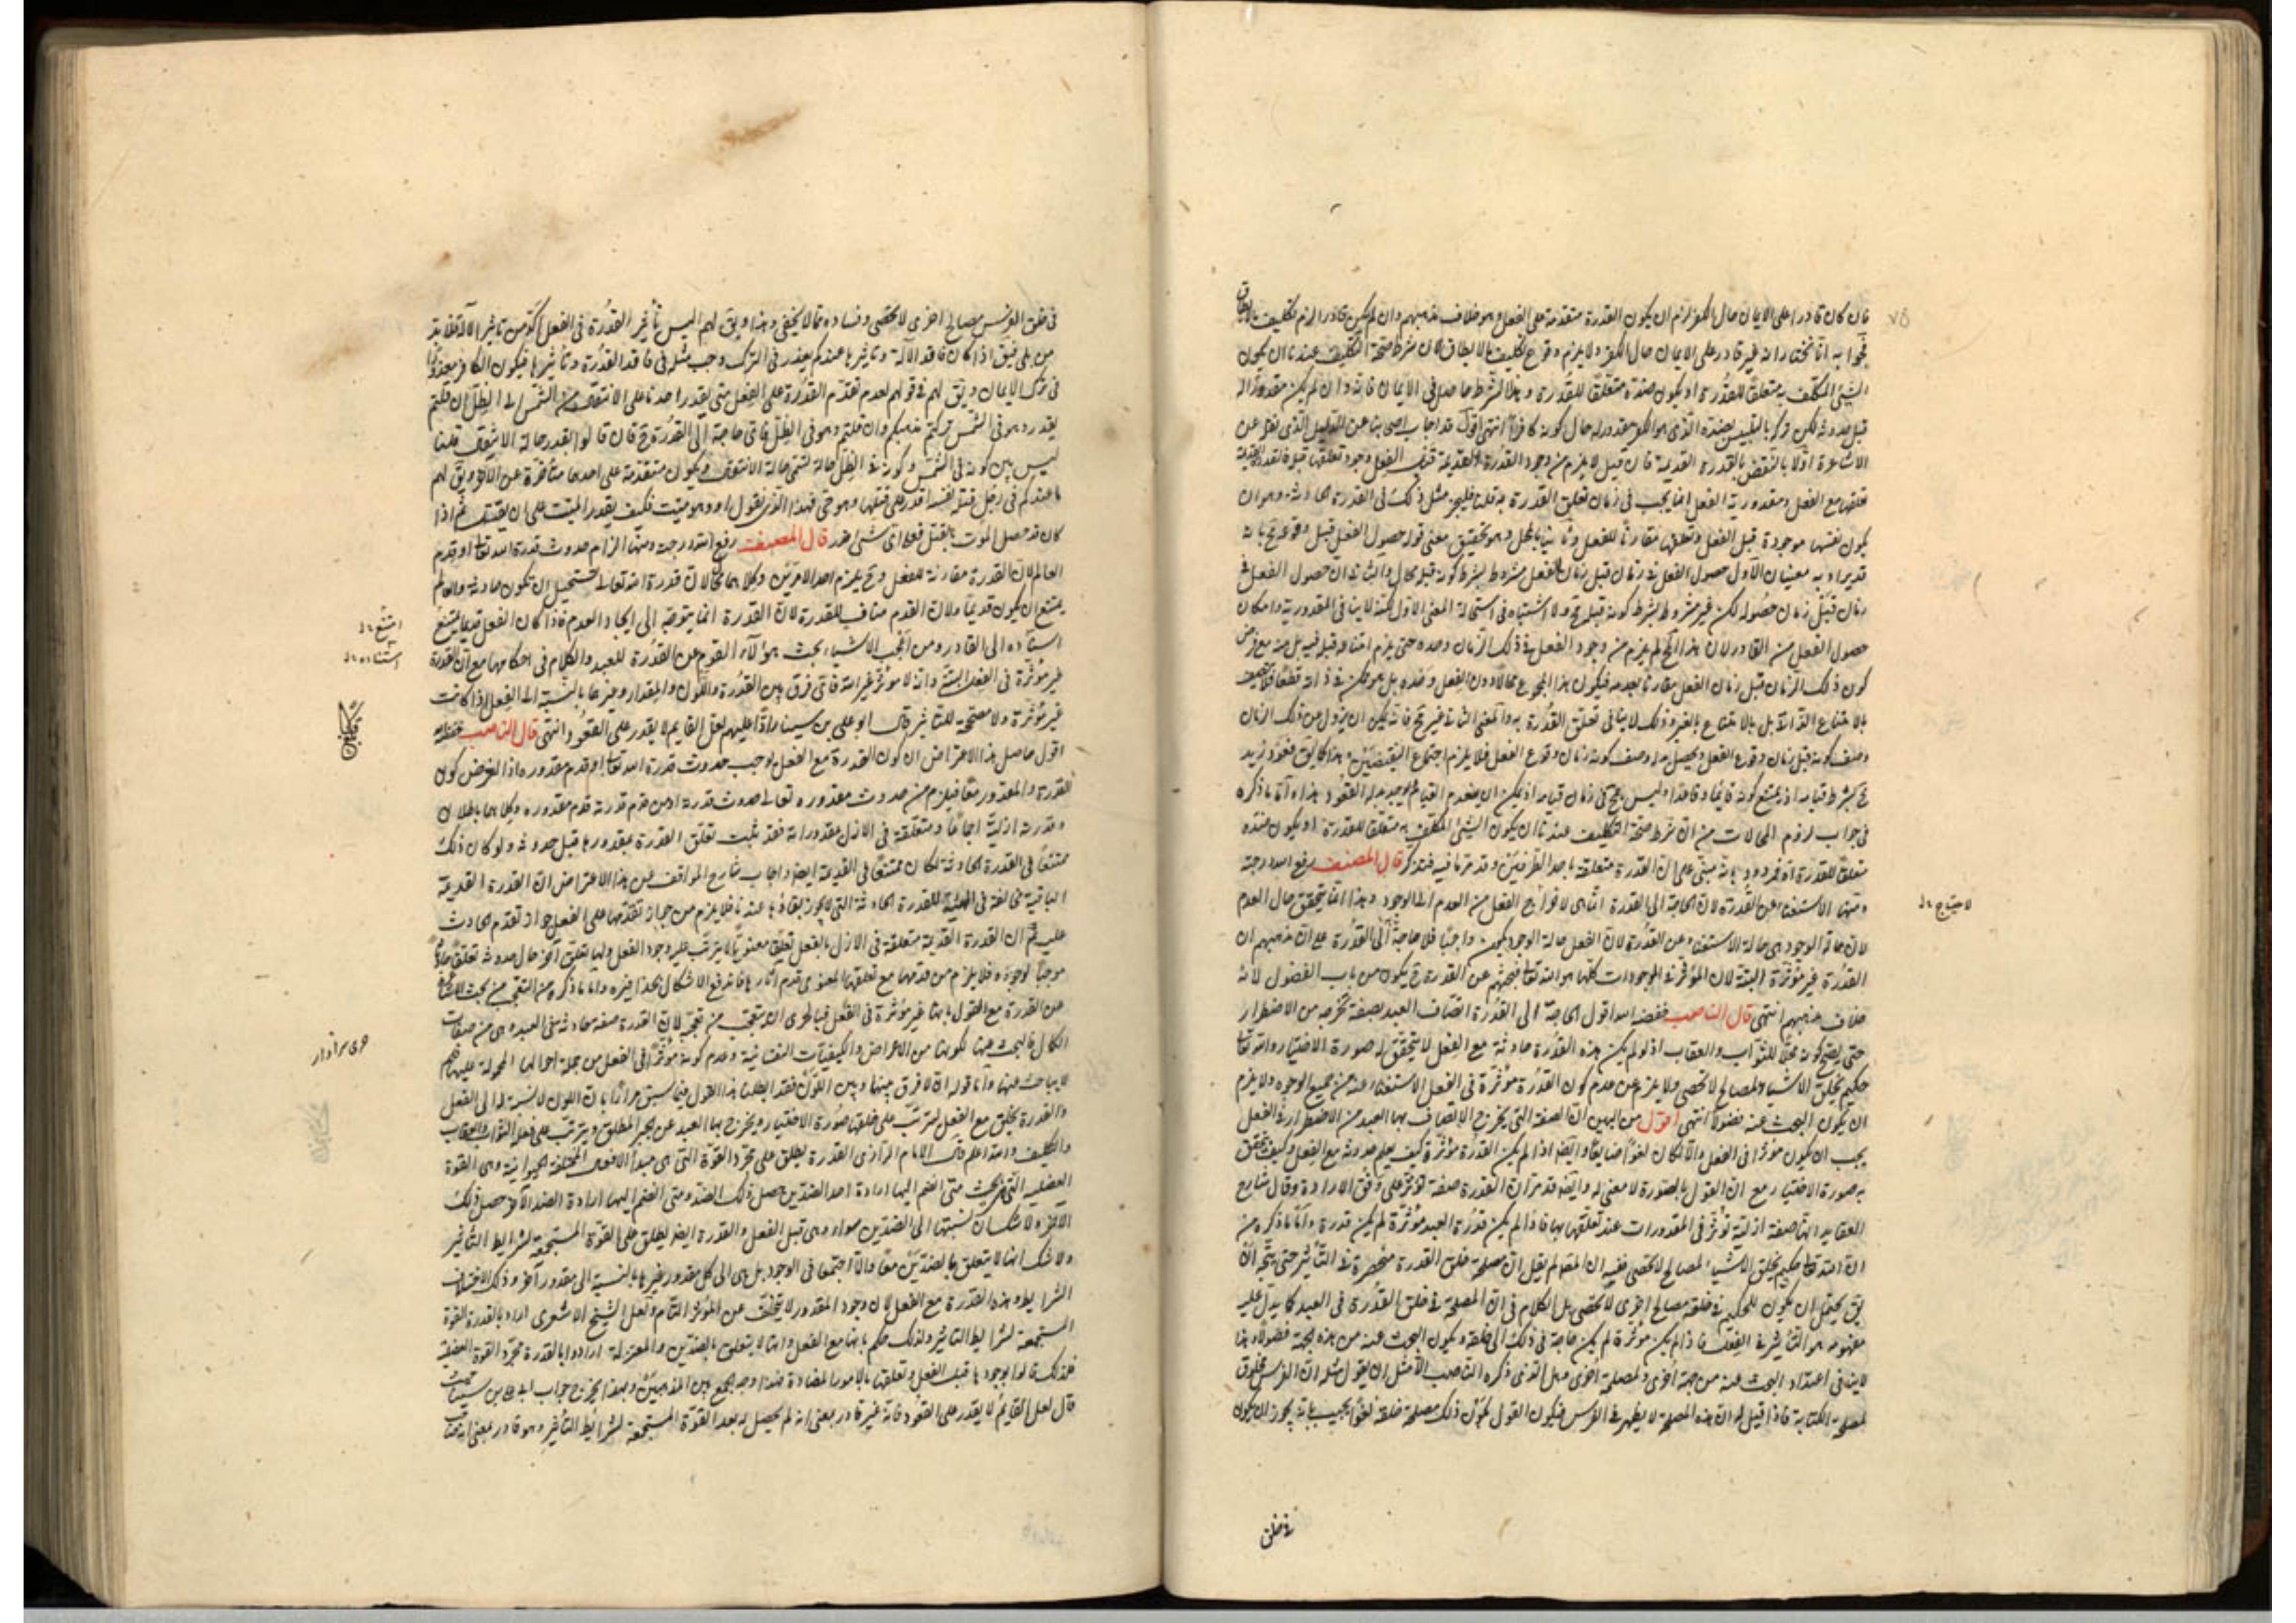 قال كان قادرا على الايمان حال الكفر لزم ان يكون القدرة متقدمة على الفعل وهو خلاف مذهبهم وان لم يكن قادرا لزم تكليف ما لا يطاق
فجوابه انا نختار انه غير قادر على الايمان حال الكفر ولا يلزم وقوع تكليف ما لا يطاق لان شرط صحة التكليف عندنا ان يكون
الشئ المكلف به متعلقا للقدرة او يكون ضده متعلقا للقدرة وهذا الشرط حاصل فى الايمان فانه وان لم يكن مقدورا له
قبل حدوثه لكن تركه بالتلبس بضده الذى هو الكفر مقدور له حال كونه كافرا انتهى اقول قد اجاب اصحابنا عن الدليل الذى نقل عن
الاشاعرة اولا بالنقض بالقدرة القديمة فان قيل لا يلزم من وجود القدرة القديمة قبل الفعل وجود تعلقها قبله
تعلقها مع الفعل ومقدورية الفعل انما يجب فى زمان تعلق القدرة به قلنا فليجز مثل ذلك فى القدرة الحادثة وهو ان
يكون نفسها موجودة قبل الفعل وتعلقها مقارنا للفعل وثانيا بالحل وهو تحقيق معنى قوله حصول الفعل قبل وقوعه مح بانه
قد يراد به معنيان الاول حصول الفعل فى زمان قبل زمان الفعل مشروط بشرط كونه قبله محال والثانى ان حصول الفعل فى
زمان قبل زمان حصوله لكن غير مشروط بشرط كونه قبله مح ولا اشتباه فى استحالة المعنى الاول لكنه لا ينافى المقدورية وامكان
حصول الفعل من القادر لان هذا المح لم يلزم من وجود الفعل فى ذلك الزمان وحده حتى يلزم امتناعه قبل فيه بل منه مع فرض
كون ذلك الزمان قبل زمان الفعل مقارنا بعدمه فيكون هذا المجموع محالا دون الفعل وحده بل هو ممكن فى ذاته قطعا
بالامتناع الذاتى بل بالامتناع بالغير وذلك لا ينافى تعلق القدرة به والمعنى الثانى غير مح فانه يمكن ان يزول عن ذلك الزمان
وصف كونه قبل زمان وقوع الفعل ويحصل بدله وصف كونه زمان وقوع الفعل فلا يلزم اجتماع النقيضين هذا كما يق قعود زيد
مح بشرط قيامه اذ يمتنع كونه قائما وقاعدا وليس بمح فى زمان قيامه اذ يمكن ان ينعدم القيام ويوجد بدله القعود هذا واما ما ذكره
فى جواب لزوم المحالات من ان شرط صحة التكليف عندنا ان يكون الشئ المكلف به متعلقا للقدرة او يكون ضده
متعلقا للقدرة آه فمردود بانه مبنى على ان القدرة متعلقة باحد الطرفين وقد مر ما فيه فتذكر قال المصنف رفع الله درجته
ومنها الاستغناء عن القدرة لان الحاجة الى القدرة انما هى لاخراج الفعل من العدم الى الوجود وهذا انما يتحقق حال العدم
لان حالة الوجود هى حالة الاستغناء عن القدرة لان الفعل حالة الوجود يكون واجبا فلا حاجة الى القدرة على ان مذهبهم ان
القدرة غير مؤثرة البتة لان المؤثر فى الموجودات كلها هو الله تعالى فبحثهم عن القدرة ح يكون من باب الفضول لانه
خلاف مذهبهم انتهى قال الناصب خفضه الله اقول الحاجة الى القدرة اتصاف العبد بصفة تخرجه من الاضطرار
حتى يصح كونه محلا للثواب والعقاب اذ لو لم يكن هذه القدرة حادثة مع الفعل لا يتحقق له صورة الاختيار والله تعالى
حكيم يخلق الاشياء لمصالح لا تحصى ولا يلزم من عدم كون القدرة مؤثرة فى الفعل الاستغناء عنه من جميع الوجوه ولا يلزم
ان يكون البحث عنه فضولا انتهى اقول من البين ان الصفة التى يخرج الاتصاف بها العبد من الاضطرار فى الفعل
يجب ان يكون مؤثرا فى الفعل والا لكان لغوا ضايعا وايضا اذا لم يكن القدرة مؤثرة كيف يعلم حدوثه مع الفعل وكيف يتحقق
به صورة الاختيار مع ان القول بالصورة لا معنى له وايضا قد مر ان القدرة صفة تؤثر على وفق الارادة وقال شارح
العقايد انها صفة ازلية تؤثر فى المقدورات عند تعلقها بها فاذا لم يكن قدرة العبد مؤثرة لم يكن قدرة واما ما ذكره من
ان الله تعالى حكيم يخلق الاشياء لمصالح لا تحصى ففيه ان المصنف لم يقل ان مصلحة خلق القدرة منحصرة فى التأثير حتى يتجه ان
يق يحتمل ان يكون للحكيم فى خلقه مصالح اخرى لا تحصى بل الكلام فى ان المصلحة فى خلق القدرة فى العبد كما يدل عليه
مفهومه هو التأثير فى الفعل فاذا لم يكن مؤثرة لم يكن حاجة فى ذلك الى خلقه ويكون البحث عنه من هذه الجهة فضولا وهذا
لا ينافى اعتداد البحث عنه من جهة اخرى ولمصلحة اخرى وهل الذى ذكره الناصب الا مثل ان يقول مثلا ان الفرس مخلوق
لمصلحة الكتابة فاذا قيل له ان هذه المصلحة لا يظهر فى الفرس فيكون القول بكون ذلك مصلحة خلقه لغوا يجيب بانه يجوز ان يكون
فى خلق
٧٥
لاحتياج
فى خلق الفرس مصالح اخرى لا تحصى وفساده مما لا يخفى وهذا ويق لهم اليس تأثير القدرة فى الفعل آكد من تأثير الآلة فلا بد
من بلى فيق اذا كان فاقد الآلة وتأثيرها عندكم يعذر فى الترك وجب مثله فى فاقد القدرة وتأثيرها فيكون الكافر معذورا
فى ترك الايمان ويق لهم فى قولهم لعدم تقدم القدرة على الفعل متى يقدر احدنا على الانتقال من الشمس الى الظل ان قلتم
يقدر وهو فى الشمس تركتم مذهبكم وان قلتم وهو فى الظل فاى حاجة الى القدرة ح فان قالوا يقدر حالة الانتقال قلنا
ليس بين كونه فى الشمس وكونه فى الظل حالة تسمى حالة الانتقال ويكون متقدمة على احدهما متأخرة عن الآخر ويق لهم
ما عندكم فى رجل قتل نفسه اقدر على قتلها وهو حى فهذا الذى نقول او وهو ميت فكيف يقدر الميت على ان يقتل ثم اذا
كان قد حصل الموت بالقتل فعلى اى شئ قدر قال المصنف رفع الله درجته ومنها الزام حدوث قدرة الله تعالى او قدم
العالم لان القدرة مقارنة للفعل وح يلزم احد الامرين وكلاهما محال لان قدرة الله تعالى تستحيل ان تكون حادثة والعالم
يمتنع ان يكون قديما ولان القدم مناف للقدرة لان القدرة انما يتوجه الى ايجاد المعدوم فاذا كان الفعل قديما يمتنع
استناده الى القادر ومن اعجب الاشياء بحث هؤلاء القوم عن القدرة للعبد والكلام فى احكامها مع ان القدرة
غير مؤثرة فى الفعل البتة وانه لا مؤثر غير الله فاى فرق بين القدرة واللون والمقدار وغيرها بالنسبة الى الفعل اذا كانت
غير مؤثرة ولا مصححة للتأثير قال ابو على بن سينا رادا عليهم لعل القايم لا يقدر على القعود انتهى قال الناصب خفضه الله
اقول حاصل هذا الاعتراض ان كون القدرة مع الفعل يوجب حدوث قدرة الله تعالى او قدم مقدوره اذ الفرض كون
القدرة والمقدور معا فيلزم من حدوث مقدوره تعالى حدوث قدرته او من قدم قدرته قدم مقدوره وكلاهما باطلان
وقدرته ازلية اجماعا ومتعلقة فى الازل بمقدوراته فقد ثبت تعلق القدرة بمقدورها قبل حدوثه ولو كان ذلك
ممتنعا فى القدرة الحادثة لكان ممتنعا فى القديمة ايضا واجاب شارح المواقف عن هذا الاعتراض ان القدرة القديمة
الباقية مخالفة فى الماهية للقدرة الحادثة التى لا يجوز بقاؤها عندنا فلا يلزم من جواز تقدمها على الفعل جواز تقدم الحادث
عليه ثم ان القدرة القديمة متعلقة فى الازل بالفعل تعلقا معنويا لا يترتب عليه وجود الفعل ولها تعلق آخر حال حدوثه تعلقا حادثا
موجبا لوجوده فلا يلزم من قدمها مع تعلقها المعنوى قدم آثارها فاندفع الاشكال بحذافيره واما ما ذكره من التعجب من بحث الاشاعرة
عن القدرة مع القول بانها غير مؤثرة فى الفعل فبالحرى ان يتعجب من تعجبه لان القدرة صفة حادثة فى العبد وهى من صفات
الكمال فالبحث عنها لكونها من الاعراض والكيفيات النفسانية وعدم كونه مؤثرا فى الفعل من جملة احوالها المحمولة عليها فلم
لا يباحث عنها واما قوله ان لا فرق بينها وبين اللون فقد ابطلنا هذا القول فيما سبق مرارا بان اللون لا نسبة له الى الفعل
والقدرة تخلق مع الفعل ليترتب على خلقها صورة الاختيار ويخرج بها العبد عن الجبر المطلق ويترتب على فعله الثواب والعقاب
والتكليف والله اعلم قال الامام الرازى القدرة يطلق على مجرد القوة التى هى مبدأ الافعال المختلفة الحيوانية وهى القوة
العضلية التى بحيث متى انضم اليها ارادة احد الضدين حصل ذلك الضد ومتى انضم اليها ارادة الضد الآخر حصل ذلك
الآخر ولا شك ان نسبتها الى الضدين سواء وهى قبل الفعل والقدرة ايضا يطلق على القوة المستجمعة لشرايط التأثير
ولا شك انها لا يتعلق بالضدين معا والا اجتمعا فى الوجود بل هى الى كل مقدور غيرها بالنسبة الى مقدور آخر وذلك لاختلاف
الشرايط وهذه القدرة مع الفعل لان وجود المقدور لا يتخلف عن المؤثر التام ولعل الشيخ الاشعرى اراد بالقدرة القوة
المستجمعة لشرايط التأثير ولذلك حكم بانها مع الفعل وانها لا يتعلق بالضدين والمعتزلة ارادوا بالقدرة مجرد القوة العضلية
فلذلك قالوا بوجودها قبل الفعل وتعلقها بالامور المتضادة فهذا وجه الجمع بين المذهبين وبهذا يخرج جواب ابى على بن سينا حيث
قال لعل القايم لا يقدر على القعود فانه غير قادر بمعنى انه لم يحصل له بعد القوة المستجمعة لشرايط التأثير وهو قادر بمعنى انه
امتنع
استناده